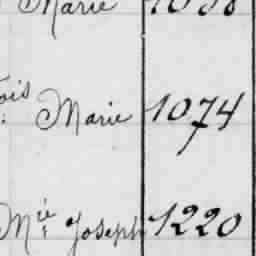 Marie 1058
ois Marie 1074
Mie Joseph 1220